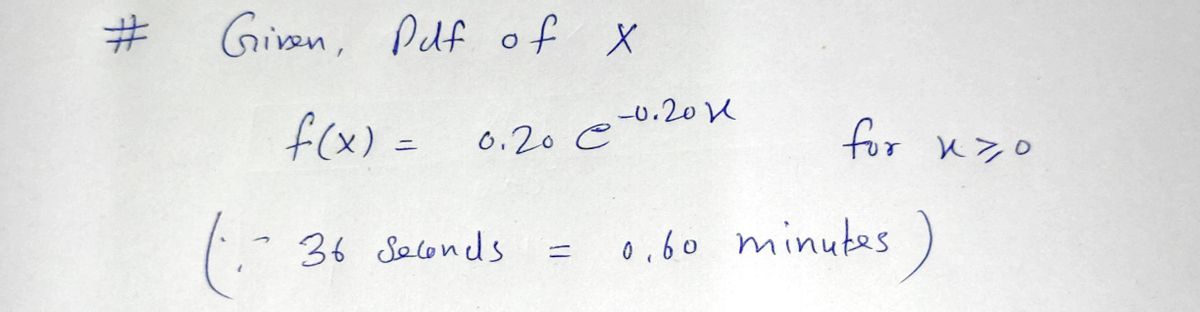 # Given, Pdf of X
f(x) = 0.20 e^-0.20x for x ⩾ 0
(∵ 36 Seconds = 0.60 minutes)